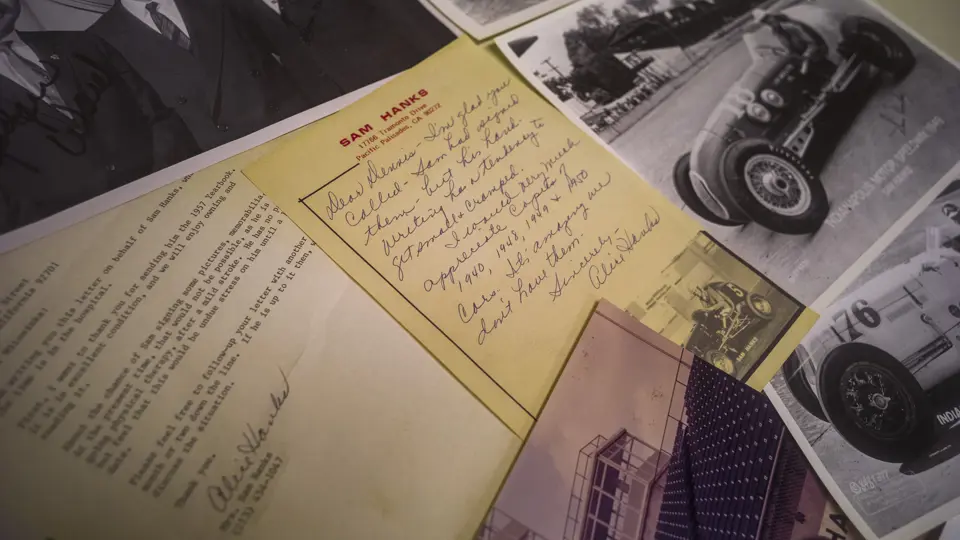 SAM HANKS
17766 Tramonto Drive
Pacific Palisades, CA 90272
Dear Dennis - I'm glad you
called - Sam had signed
them - but his hand-
writing has a tendency to
get small & cramped.
I would very much
appreciate copies of
1940, 1948, 1949 &
cars. If, anyway we
don't have them.
Sincerely -
Alice Hanks
SAM HANKS
writing you this letter on behalf of Sam Hanks,
time is in the hospital.
First, I want to thank you for sending him the 1957 Yearbook.
It is in excellent condition, and we will enjoy owning and
reading it.
About the chance of Sam signing some pictures, memorabilia,
at the present time, that would not be possible, as he is
physical therapy, after a mild stroke. He has no
feel that this would be undue stress on him until a
date.
Please feel free to follow-up your letter with another
month or two down the line. If he is up to it then,
the situation.
Thank you.
Alice Hanks
Mrs. Sam Hanks
INDIANAPOLIS MOTOR SPEEDWAY
176
INDIA
HA